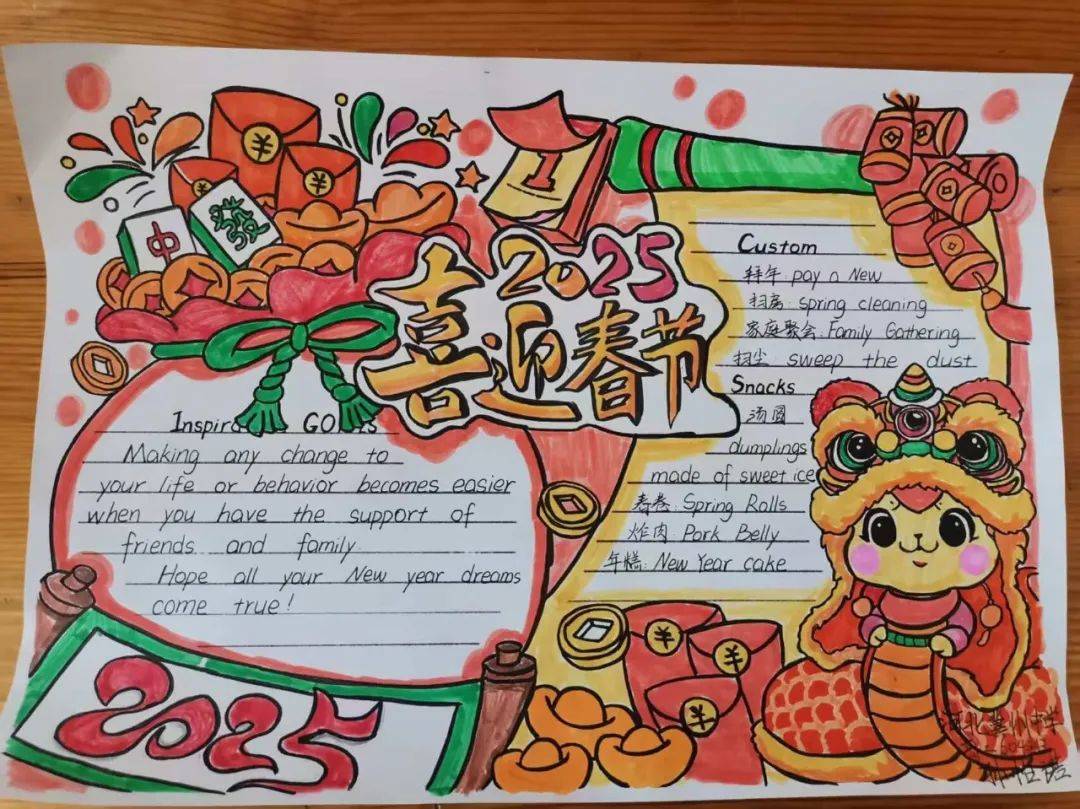 中
發
1
2025
喜迎春节
Making any change to
your life or behavior becomes easier
when you have the support of
friends and family
Hope all your New year dreams
come true!
2025
Custom
拜年: pay a New
扫房: spring cleaning
家庭聚会: Family Gathering
扫尘: sweep the dust
Snacks
汤圆
dumplings
made of sweet ice
春卷: Spring Rolls
炸肉: Pork Belly
年糕: New Year cake
¥
¥
¥
¥
¥
¥